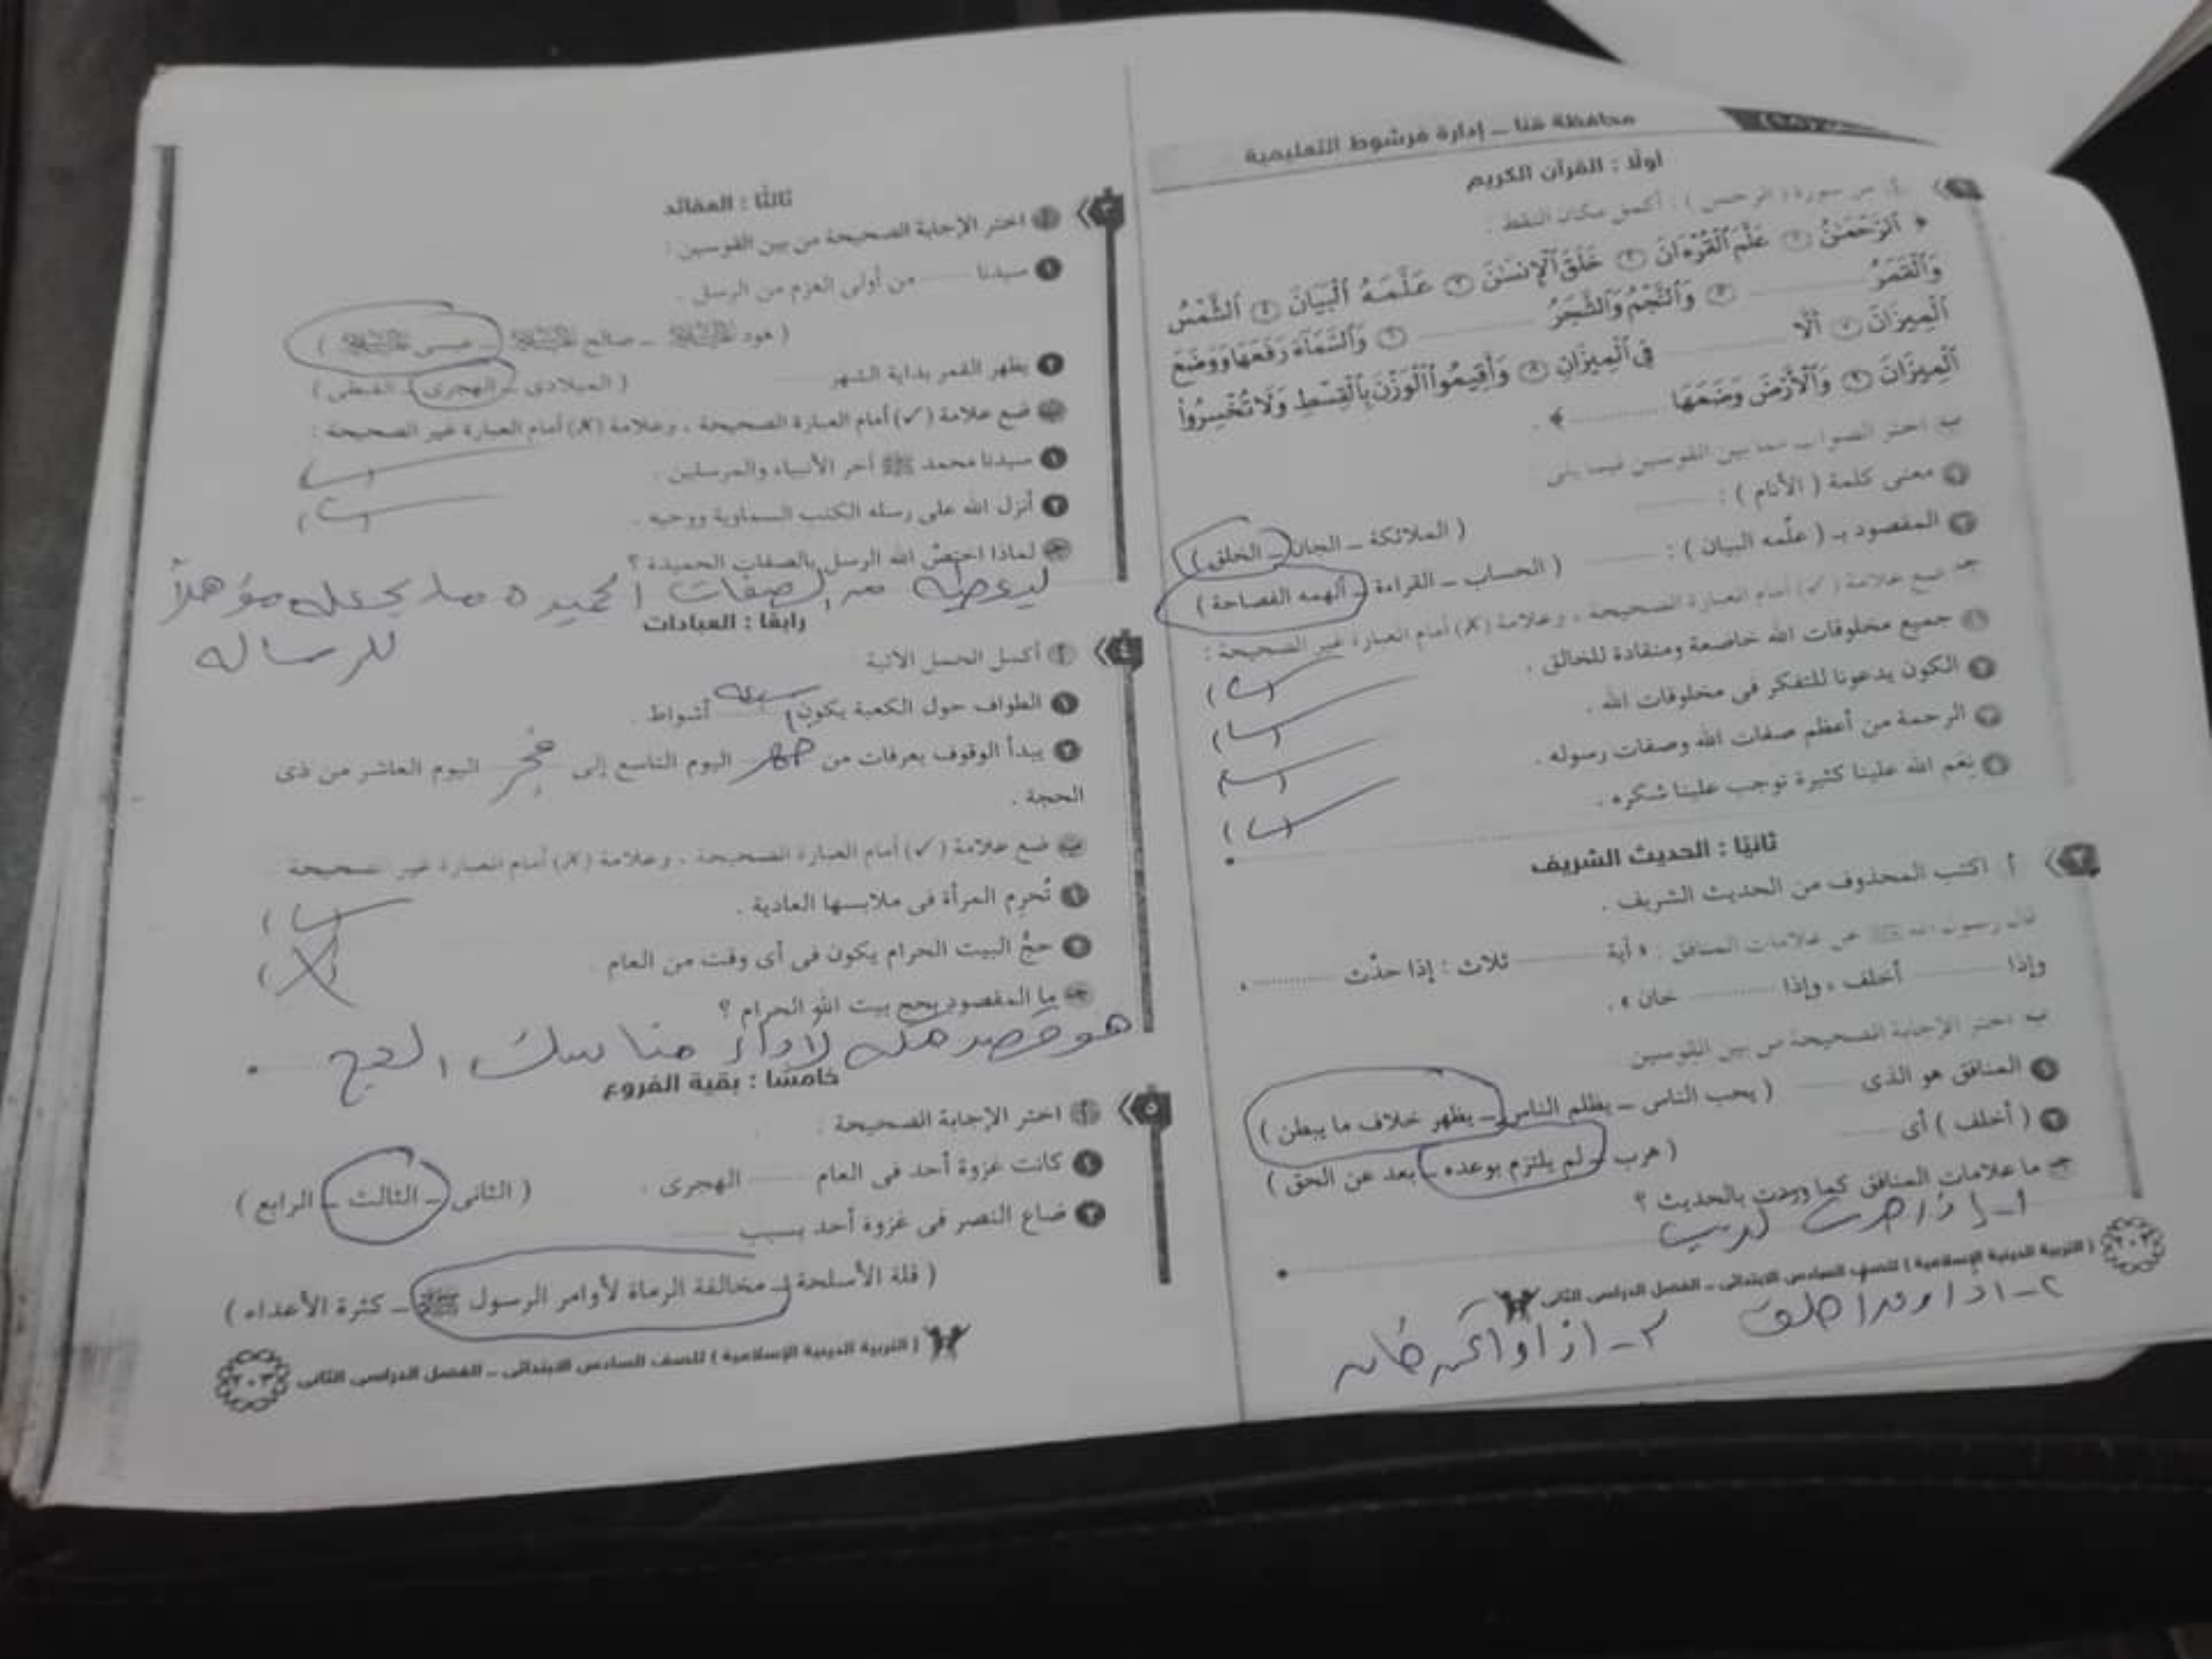 محافظة قنا – إدارة فرشوط التعليمية
أولًا : القرآن الكريم
أ من سورة ( الرحمن ) : أكمل مكان النقط .
﴿ ٱلرَّحْمَٰنُ ١ عَلَّمَ ٱلْقُرْءَانَ ٢ خَلَقَ ٱلْإِنسَٰنَ ٣ عَلَّمَهُ ٱلْبَيَانَ ٤ ٱلشَّمْسُ
وَٱلْقَمَرُ .......... ٥ وَٱلنَّجْمُ وَٱلشَّجَرُ .......... ٦ وَٱلسَّمَآءَ رَفَعَهَا وَوَضَعَ
ٱلْمِيزَانَ ٧ أَلَّا .......... فِى ٱلْمِيزَانِ ٨ وَأَقِيمُوا۟ ٱلْوَزْنَ بِٱلْقِسْطِ وَلَا تُخْسِرُوا۟
ٱلْمِيزَانَ ٩ وَٱلْأَرْضَ وَضَعَهَا .......... ﴾ .
ب اختر الصواب مما بين القوسين فيما يلى
١ معنى كلمة ( الأنام ) : ..........
( الملائكة – الجان – الخلق )
٢ المقصود بـ ( علّمه البيان ) : .......... ( الحساب – القراءة – ألهمه الفصاحة )
جـ ضع علامة (✓) أمام العبارة الصحيحة ، وعلامة (✗) أمام العبارة غير الصحيحة :
١ جميع مخلوقات الله خاضعة ومنقادة للخالق . (✓)
٢ الكون يدعونا للتفكر فى مخلوقات الله . (✓)
٣ الرحمة من أعظم صفات الله وصفات رسوله . (✓)
٤ نِعَم الله علينا كثيرة توجب علينا شكره . (✓)
٢ ثانيًا : الحديث الشريف
أ اكتب المحذوف من الحديث الشريف .
قال رسول الله ﷺ عن علامات المنافق : « آية .......... ثلاث : إذا حدّث .......... ،
وإذا .......... أخلف ، وإذا .......... خان » .
ب اختر الإجابة الصحيحة من بين القوسين
١ المنافق هو الذى .......... ( يحب الناس – يظلم الناس – يظهر خلاف ما يبطن )
٢ ( أخلف ) أى .......... ( هرب – لم يلتزم بوعده – بعد عن الحق )
جـ ما علامات المنافق كما وردت بالحديث ؟
١- إذا حدث كذب
( التربية الدينية الإسلامية ) للصف السادس الابتدائى – الفصل الدراسى الثانى
٢- اذا وعد اخلف ٣- اذا اؤتمن خان
٣ ثالثًا : العقائد
أ اختر الإجابة الصحيحة من بين القوسين :
١ سيدنا .......... من أولى العزم من الرسل .
( هود – صالح – عيسى )
٢ يظهر القمر بداية الشهر .......... ( الميلادى – الهجرى – القبطى )
ب ضع علامة (✓) أمام العبارة الصحيحة ، وعلامة (✗) أمام العبارة غير الصحيحة :
١ سيدنا محمد ﷺ آخر الأنبياء والمرسلين . (✓)
٢ أنزل الله على رسله الكتب السماوية ووحيه . (✓)
جـ لماذا اختصّ الله الرسل بالصفات الحميدة ؟
ليعطيه من الصفات الحميده ما يجعله مؤهلاً
للرساله
٤ رابعًا : العبادات
أ أكمل الجمل الآتية
١ الطواف حول الكعبة يكون سبعه أشواط .
٢ يبدأ الوقوف بعرفات من ظهر اليوم التاسع إلى فجر اليوم العاشر من ذى
الحجة .
ب ضع علامة (✓) أمام العبارة الصحيحة ، وعلامة (✗) أمام العبارة غير الصحيحة
١ تُحرِم المرأة فى ملابسها العادية . (✓)
٢ حجُّ البيت الحرام يكون فى أى وقت من العام (✗)
جـ ما المقصود بحج بيت الله الحرام ؟
هو قصد مكه لأداء مناسك الحج
٥ خامسًا : بقية الفروع
أ اختر الإجابة الصحيحة :
١ كانت غزوة أحد فى العام .......... الهجرى . ( الثانى – الثالث – الرابع )
٢ ضاع النصر فى غزوة أحد بسبب ..........
( قلة الأسلحة – مخالفة الرماة لأوامر الرسول ﷺ – كثرة الأعداء )
( التربية الدينية الإسلامية ) للصف السادس الابتدائى – الفصل الدراسى الثانى ٢٠٣